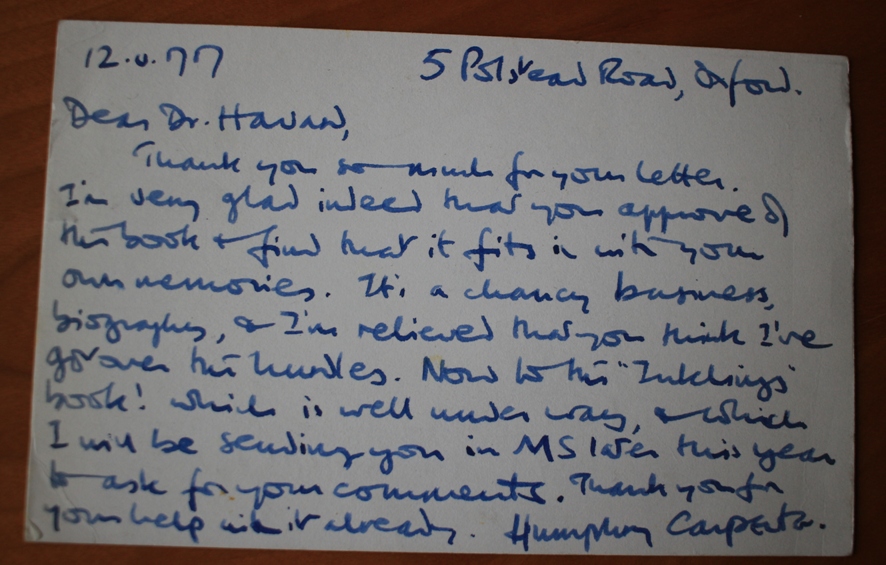 12.v.77 5 Polstead Road, Oxford.
Dear Dr. Havard,
Thank you so much for your letter.
I'm very glad indeed that you approve of
the book & find that it fits in with your
own memories. It's a chancy business,
biography, & I'm relieved that you think I've
got over the hurdles. Now to the "Inklings"
book! which is well under way, & which
I will be sending you in MS later this year
to ask for your comments. Thank you for
your help with it already. Humphrey Carpenter.